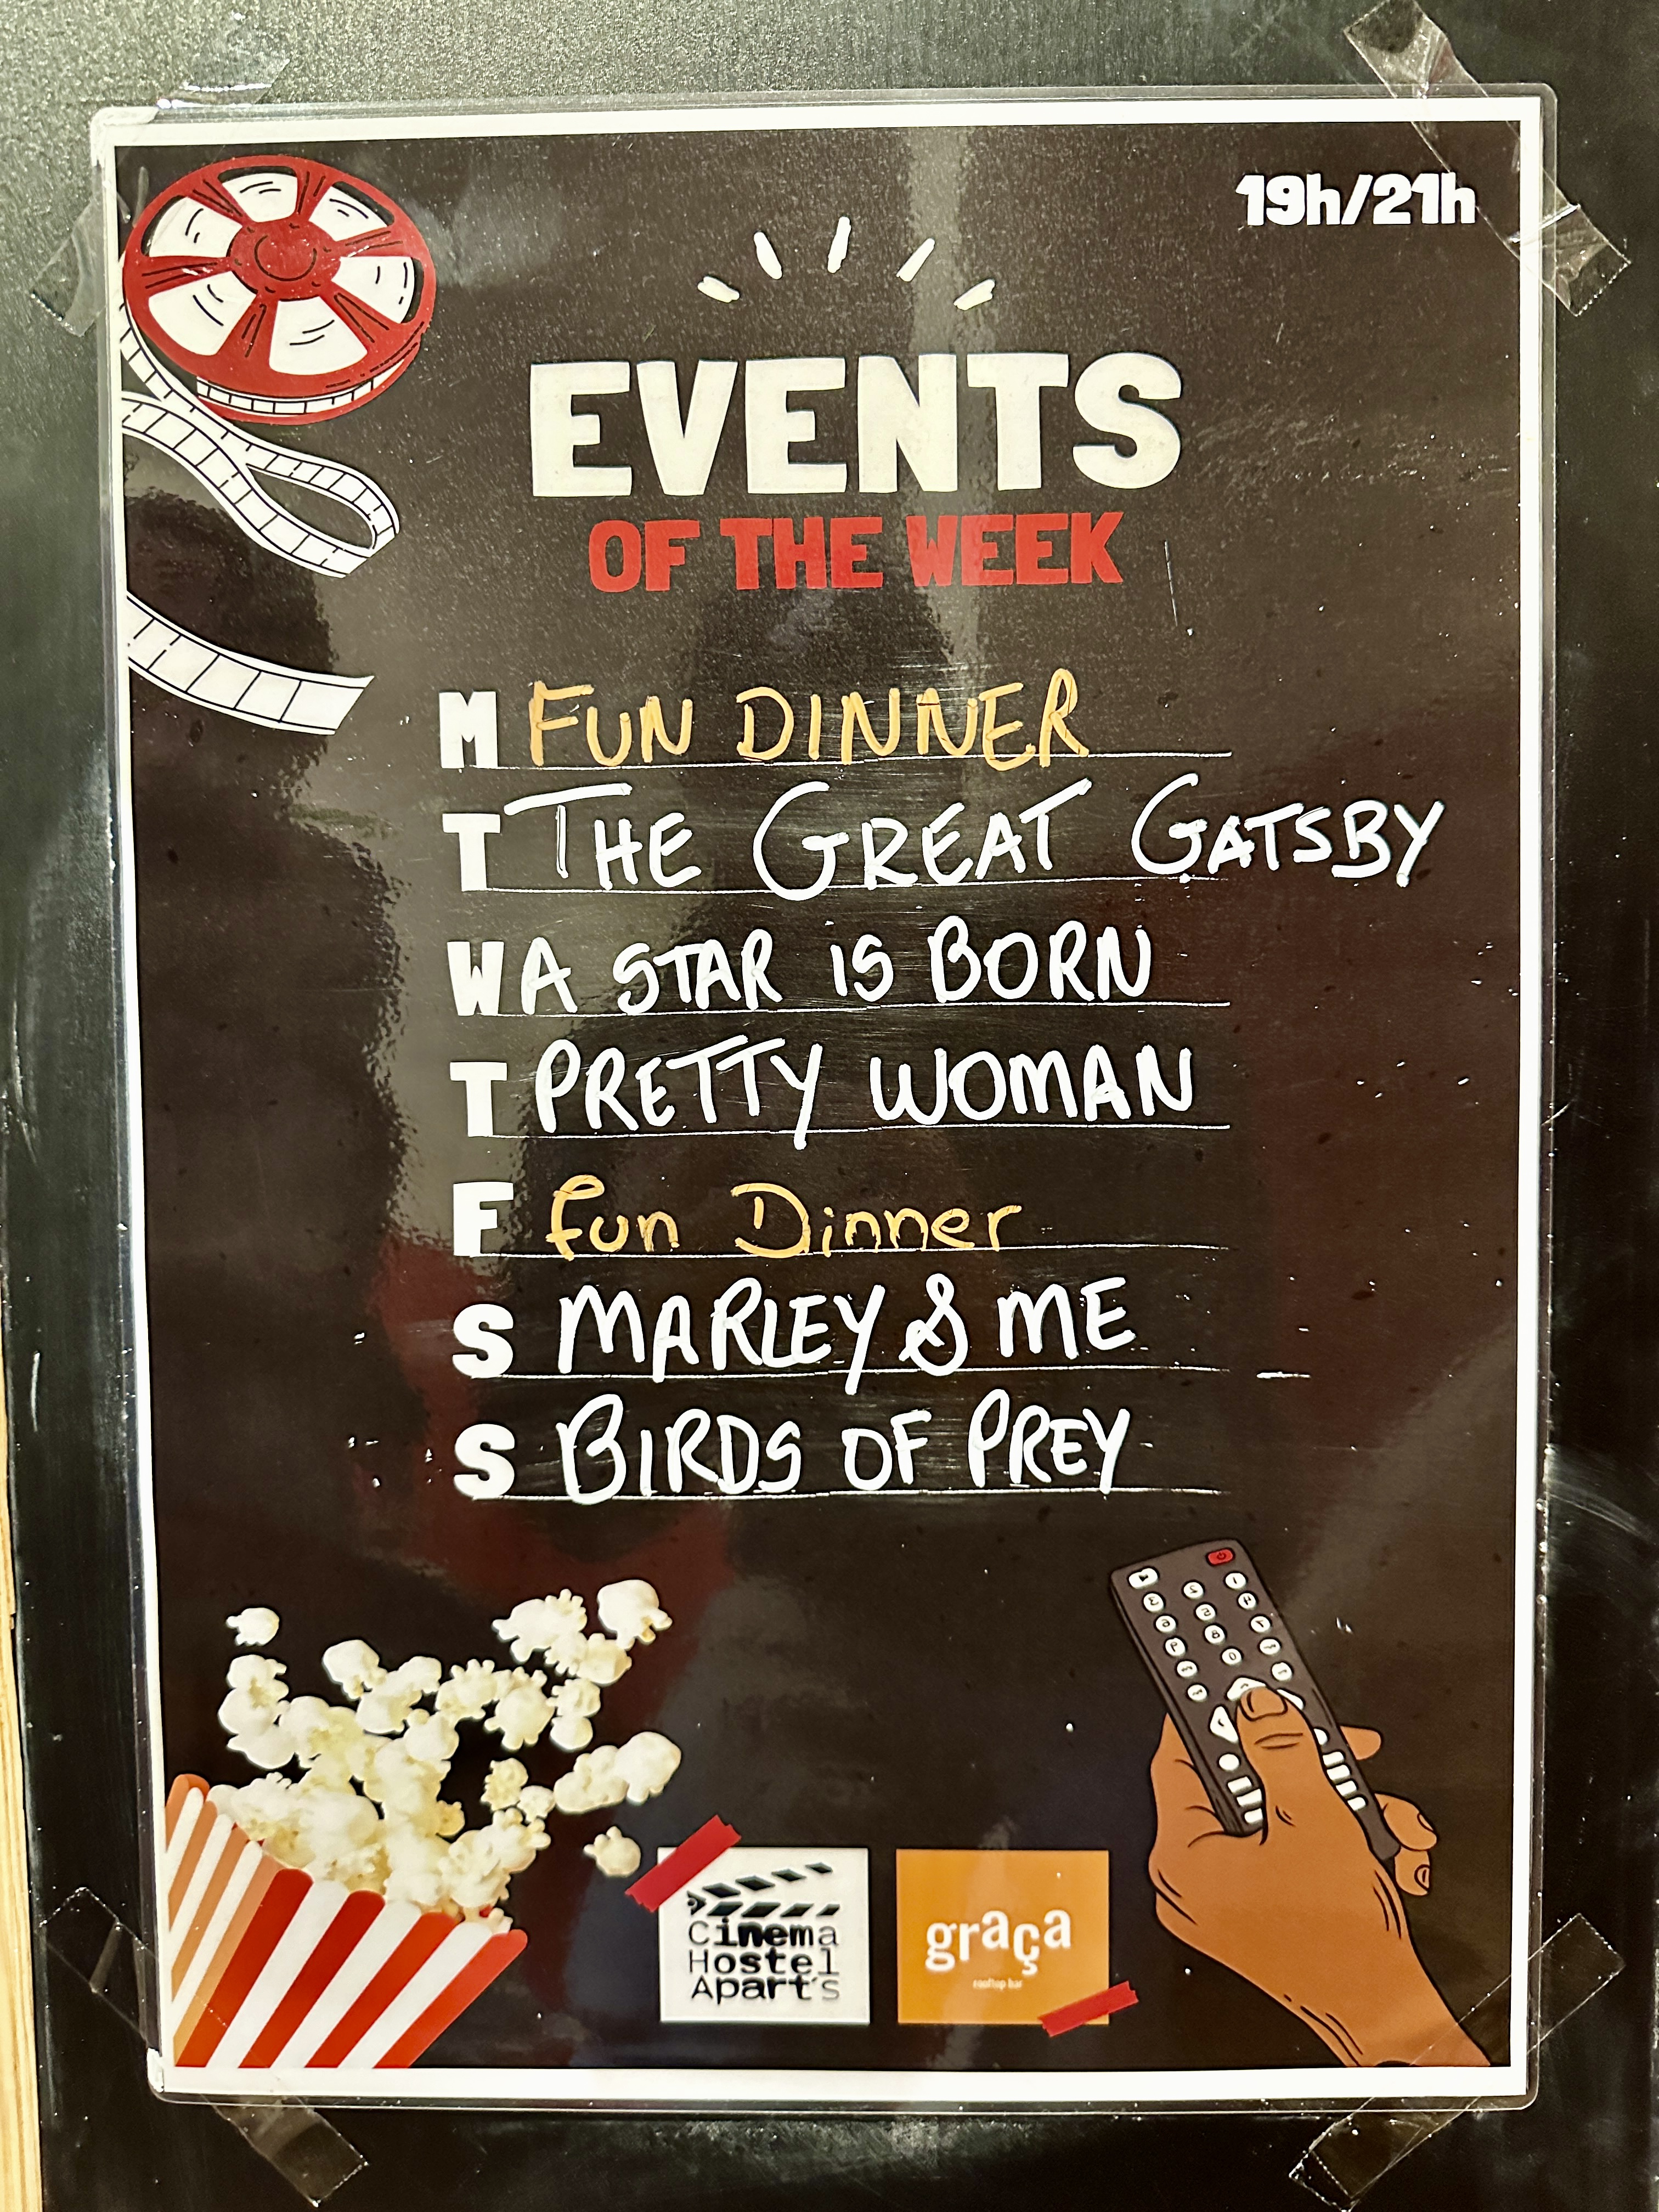 19h/21h
EVENTS
OF THE WEEK
M FUN DINNER
T THE GREAT GATSBY
W A STAR IS BORN
T PRETTY WOMAN
F fun Dinner
S MARLEY & ME
S BIRDS OF PREY
Cinema
Hostel
Apart's
graça
rooftop bar